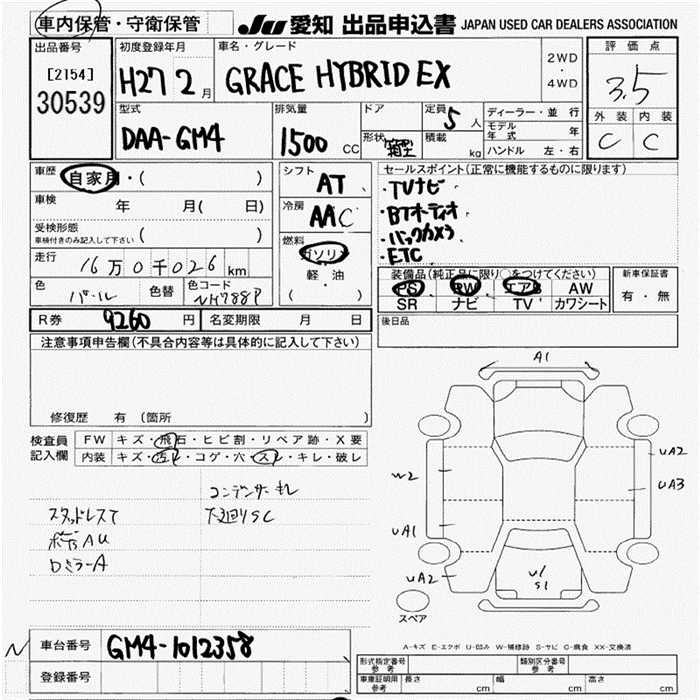 車内保管・守衛保管
JU 愛知 出品申込書 JAPAN USED CAR DEALERS ASSOCIATION
出品番号 初度登録年月 車名・グレード 評価点
[2154] H27 2月 GRACE HYBRID EX 2WD・4WD 3.5
30539
外装 内装
型式 排気量 ドア 定員 5人 ディーラー・並行
C C
DAA-GM4 1500 CC 形状 箱型 積載 kg モデル年式 年
ハンドル 左・右
車歴 自家用・( ) シフト AT セールスポイント(正常に機能するものに限ります)
・TVナビ
車検 年 月( 日) 冷房 AAC ・BTオーディオ
受検形態 ( )
車検付きのみ記入して下さい
・バックカメラ
燃料 ガソリン ・ETC
走行 16万0千026km 軽・油 装備品(純正品に限り○をつけてください) 新車保証書
( ) PS PW エアB AW 有・無
色 パール 色替 色コード NH788P SR ナビ TV カワシート
R券 9260円 名変期限 月 日 後日品
注意事項申告欄(不具合内容等は具体的に記入して下さい)
A1
修復歴 有 (箇所
検査員 FW キズ・飛石・ヒビ割・リペア跡・X要
記入欄 内装 キズ・汚レ・コゲ・穴・スレ・キレ・破レ
UA2
W2
コンデンサーキレ UA3
スタッドレスT 下廻りSC
UA1
ボデーAU
ロミラーA
UA2 U1
S1
スペア
N 車台番号 GM4-1012358
A-キズ E-エクボ U-凹み W-補修跡 S-サビ C-腐食 XX-交換済
形式指定番号 参考 類別区分番号 参考
登録番号 車庫証明用 参考 長さ cm 幅 cm 高さ cm